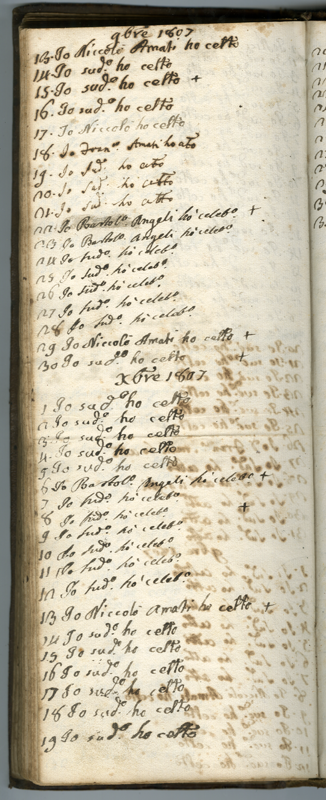 9bre 1807
13. Io Niccolò Amati ho celto
14. Io sud.o ho celto
15. Io sud.o ho celto +
16. Io sud.o ho celto
17. Io Niccolò ho celto
18. Io Fran.o Amati ho cto
19. Io sud.o ho cto
20. Io sud.o ho ctto
21. Io sud.o ho ctto
22 Io Bartol.o Angeli hò celeb.o +
23 Io Bartol.o Angeli hò celeb.o
24 Io sud.o hò celeb.o
25 Io sud.o hò celeb.o
26 Io sud.o hò celeb.o
27 Io sud.o hò celeb.o
28 Io sud.o hò celeb.o
29 Io Niccolò Amati ho celto +
30 Io sud.o ho celto +
Xbre 1807
1 Io sud.o ho celto
2 Io sud.o ho celto
3 Io sud.o ho celto
4 Io sud.o ho celto
5 Io sud.o ho celto
6 Io Bartol.o Angeli hò celeb.o +
7 Io sud.o hò celeb.o
8 Io sud.o hò celeb.o +
9 Io sud.o hò celeb.o
10 Io sud.o hò celeb.o
11 Io sud.o hò celeb.o
12 Io sud.o hò celeb.o
13 Io Niccolò Amati ho celto +
14 Io sud.o ho celto
15 Io sud.o ho celto
16 Io sud.o ho celto
17 Io sud.o ho celto
18 Io sud.o ho celto
19 Io sud.o ho celto